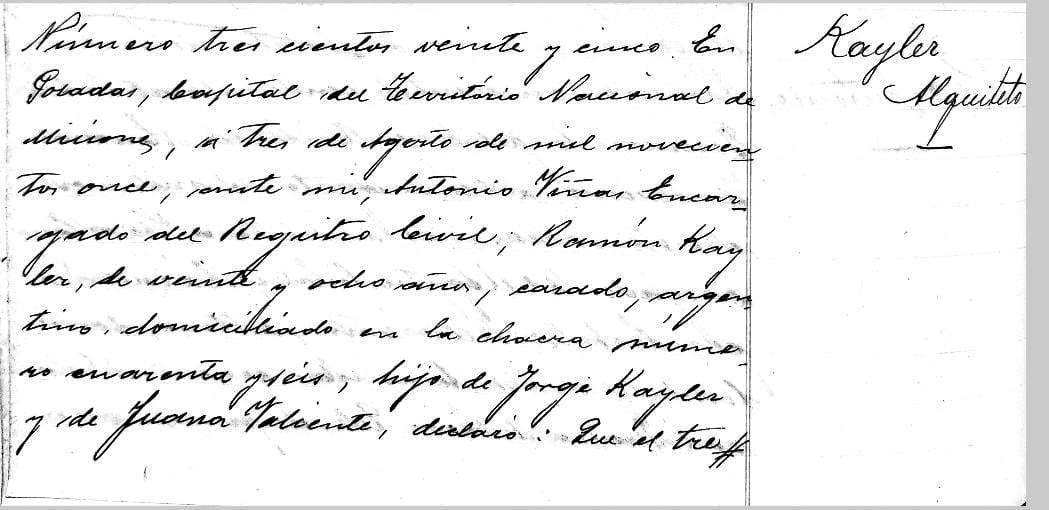 Número tres cientos veinte y cinco. En
Posadas, Capital del Território Nacional de
Misiones, á tres de Agosto de mil novecien
tos once, ante mi, Antonio Viñas Encar-
gado del Registro Civil; Ramón Kay
ler, de veinte y ocho años, casado, argen
tino, domiciliado en la chacra núme-
ro cuarenta y séis, hijo de Jorge Kayler
y de Juana Valiente, declaró: Que el tre
Kayler
Alquiteto